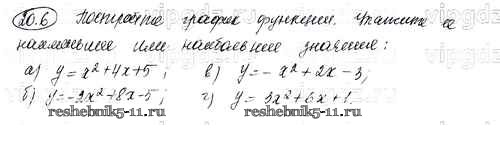 20.6 Постройте график функции. Укажите её
наименьшее или наибольшее значение:
а) y = x² + 4x + 5; в) y = - x² + 2x - 3;
б) y = -2x² + 8x - 5; г) y = 3x² + 6x + 1.
reshebnik5-11.ru reshebnik5-11.ru